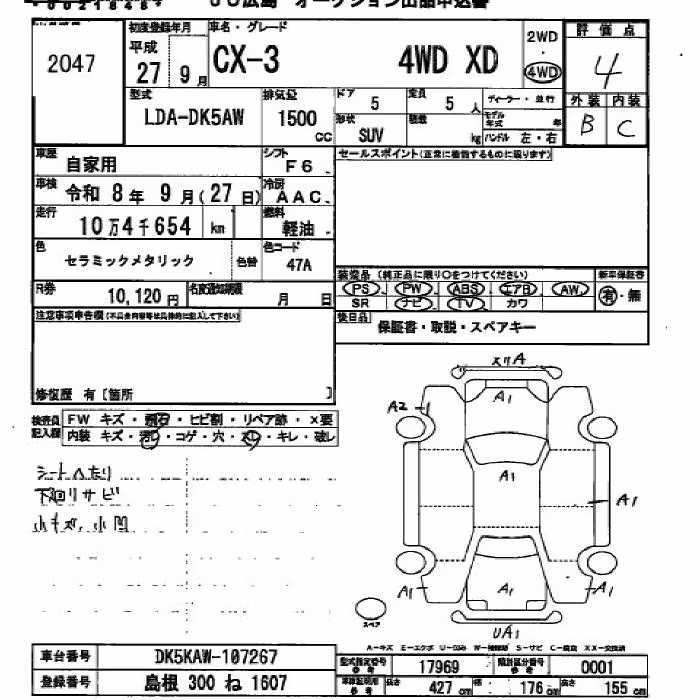 JU広島 オークション出品申込書
2047
初度登録年月 車名・グレード 2WD 評価点
平成 27 9月 CX-3 4WD XD 4WD 4
型式 排気量 ドア 5 定員 5人 ディーラー・並行 外装 内装
LDA-DK5AW 1500 cc 形状 SUV 積載 kg モデル年式 年 ハンドル 左・右 B C
車歴 自家用 シフト F6 セールスポイント(正常に機能するものに限ります)
車検 令和 8年 9月(27日) 冷房 AAC
走行 10万4千654 km 燃料 軽油
色 セラミックメタリック 色替 色コード 47A
装備品 (純正品に限り○をつけてください) 新車保証書
PS PW ABS エアB AW 有・無
SR ナビ TV カワ
R券 10,120円 名変通知期限 月 日
後日品 保証書・取説・スペアキー
注意事項申告欄(不具合内容等は具体的に記入して下さい)
修復歴 有〔箇所 〕
検査員記入欄 FW キズ・飛石・ヒビ割・リペア跡・×要
内装 キズ・汚レ・コゲ・穴・スレ・キレ・破レ
シートヘたり
下廻りサビ
小キズ、小凹
スリA
A1
A2
A1
A1
A1 A1 A1
UA1
スペア
A-キズ E-エクボ U-凹み W-補修跡 S-サビ C-腐食 XX-交換済
車台番号 DK5KAW-107267 型式指定番号 参考 17969 類別区分番号 参考 0001
登録番号 島根 300 ね 1607 車検証明用 参考 長さ 427 cm 幅 176 cm 高さ 155 cm